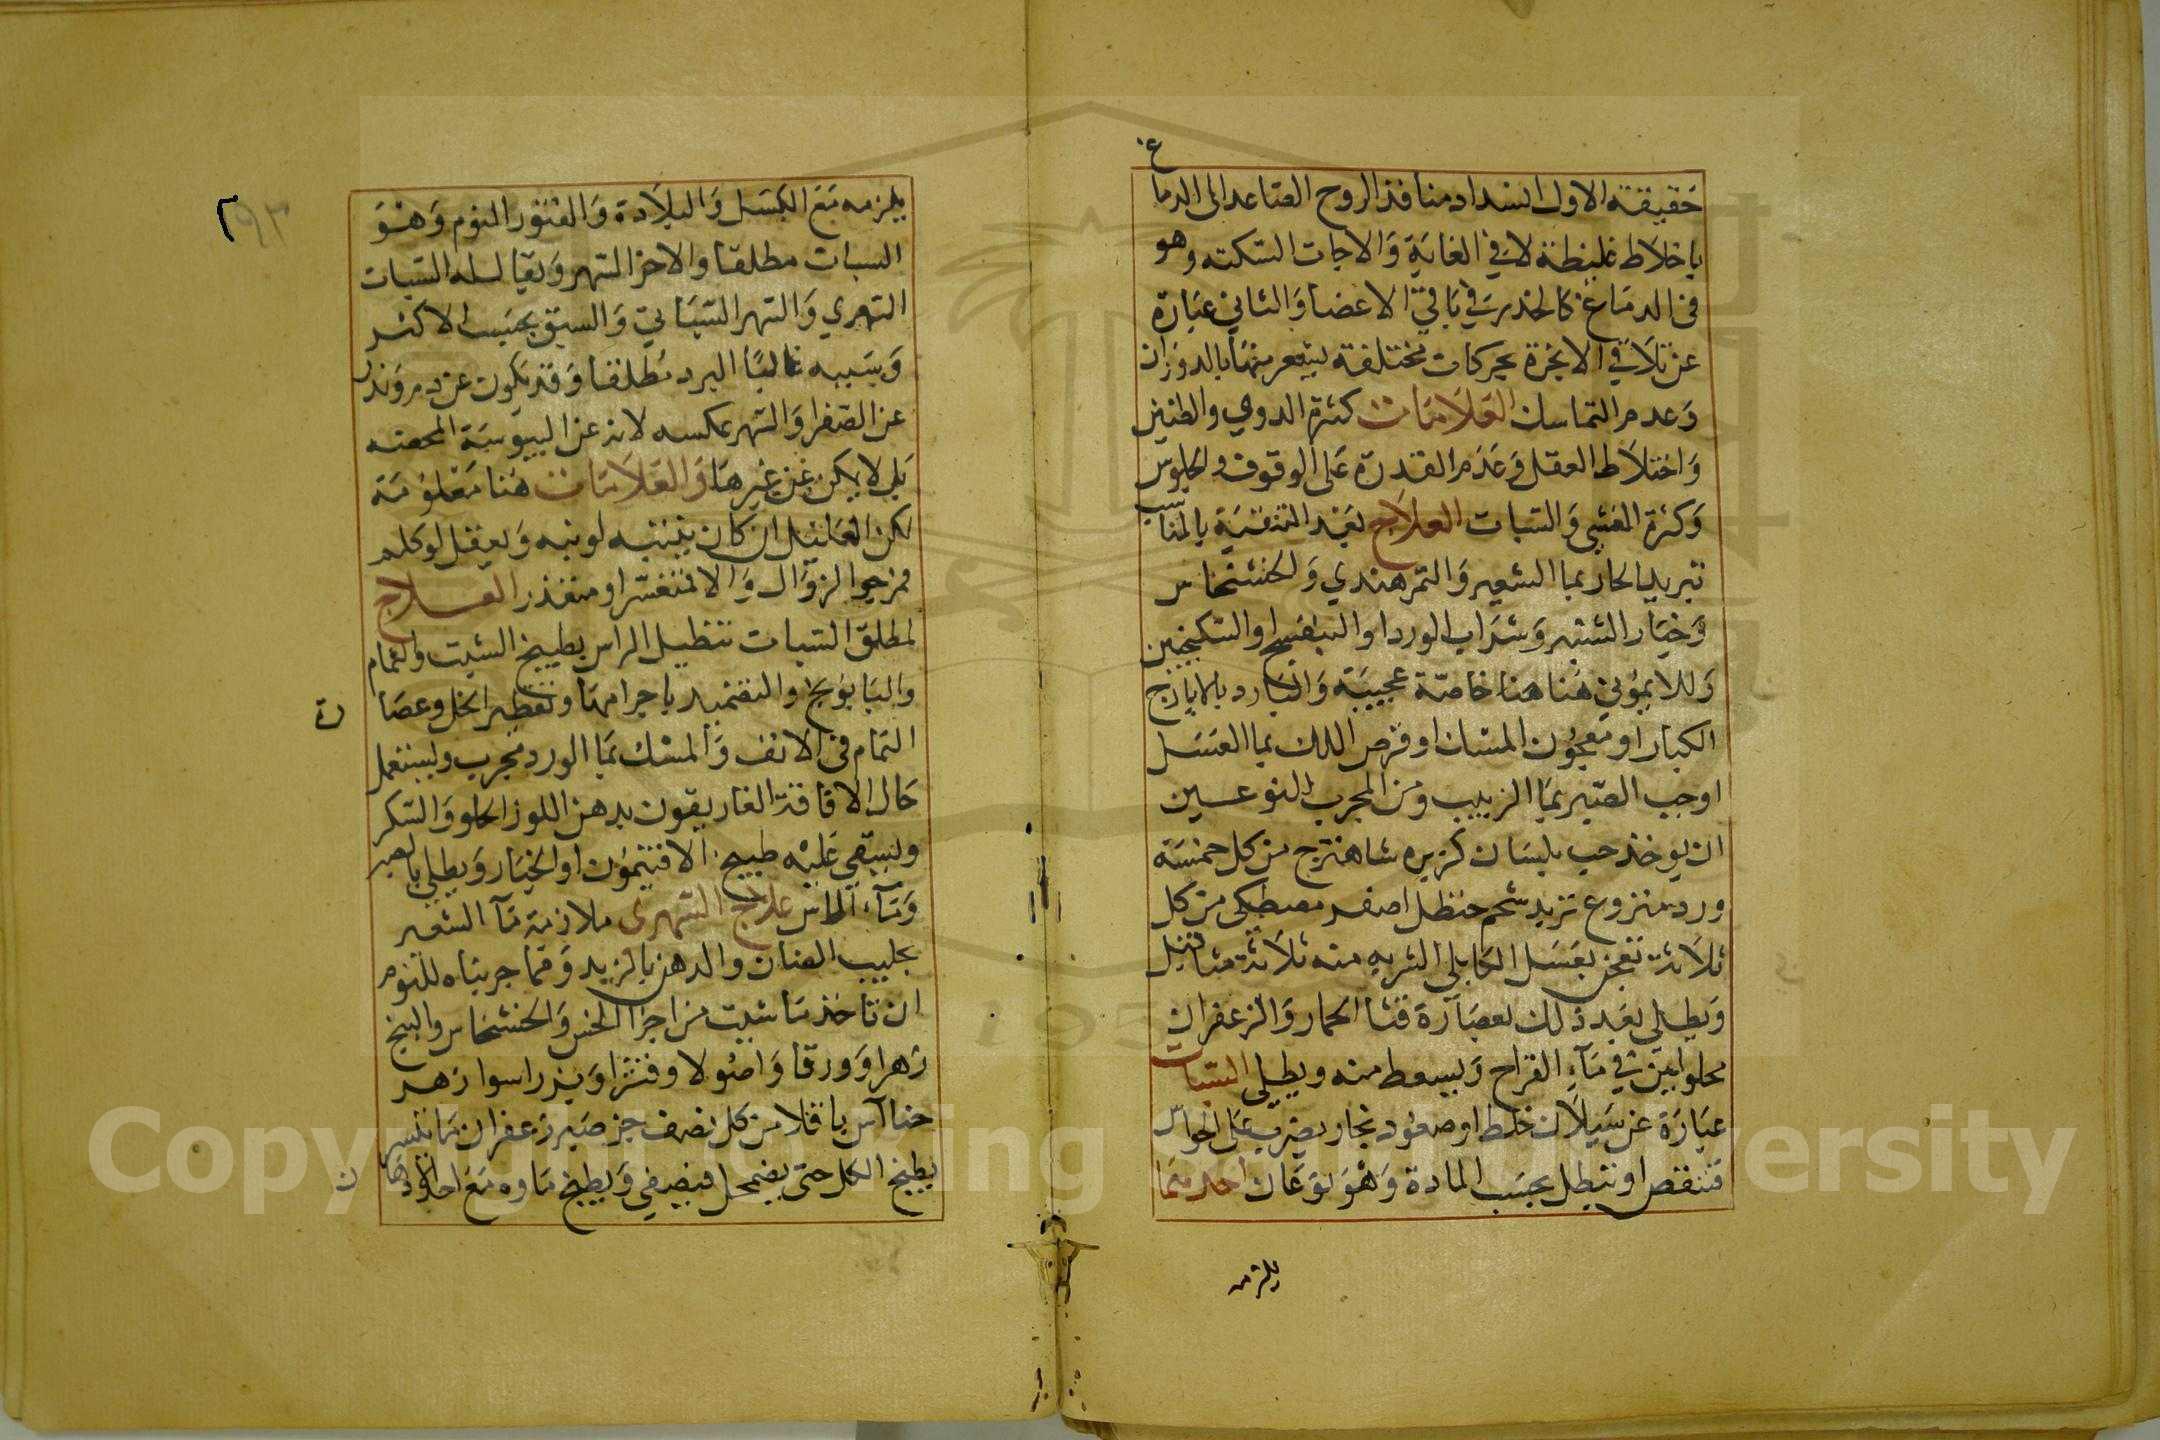 ع
حقيقة الاول انسداد منافذ الروح الصاعد الى الدما
باخلاط غليظة لا في الغاية والا جات السكته وهو
في الدماغ كالخدر في باقي الاعضا والثاني عبارة
عن تلاقي الابخرة بحركات مختلفة يشعر منها بالدوران
وعدم التماسك العلامات كثرة الدوي والطنين
واختلاط العقل وعدم القدرة على الوقوف والجلوس
وكثرة الغشي والسبات العلاج بعد التنقية بالمناسب
تبريد الحار بما الشعير والتمر هندي والخشخاش
وخيار الشنبر وشراب الورد او البنفسج او السكنجبين
وللايموني هنا هنا خاصة عجيبة والبارد بالايارج
الكبار او معجون المسك او قرص الملك بما العسل
او حب الصبر بما الزبيب ومن المجرب للنوعين
ان يوخذ حب بلسان كزبره شاهترج من كل خمسة
ورد منزوع تربد شحم حنظل اصفر مصطكى من كل
ثلاثة تعجن بعسل الكابلي الشربه منه ثلاثة مثاقيل
ويطلي بعد ذلك بعصارة قثا الحمار والزعفران
محلولين في مآء القراح ويسعط منه ويطلي السبات
عبارة عن سيلان خلط او صعود بخار يضرب على الحواس
فتنقص او تبطل بحسب المادة وهو نوعان احدهما
يلزمه
يلزمه مع الكسل والبلادة والفتور النوم وهو
السبات مطلقا والاخر السهر ويقال له السبات
السهري والسهر السباتي والسبق بحسب الاكثر
وسببه غالبا البرد مطلقا وقد يكون عن دم وندر
عن الصفرا والسهر عكسه لانه عن اليبوسة المحضه
بل لا يكن عن غيرها والعلامات هنا معلومة
لكن العليل ان كان ينتبه لو نبه ويعقل لو كلم
فمرجو الزوال والا فمتعسر او متعذر العلاج
لمطلق السبات تنطيل الراس بطبيخ الشبت والنمام
والبابونج والتضميد باجرامها وتقطير الخل وعصا
رة
النمام في الانف والمسك بما الورد مجرب ويستعمل
حال الافاقة الغاريقون بدهن اللوز الحلو والسكر
ويسقي عليه طبيخ الافتيمون او الخيار ويطلي بالصبر
ومآء الآس علاج السهري ملازمة مآ الشعير
بحليب الضان والدهن بالزبد ومما جربناه للنوم
ان تاخذ ما شيت من اجزا الخس والخشخاش والبنج
زهرا وورقا واصولا وقشرا وبزرا سوا زهر
حنا آس باقلا من كل نصف جز صبر زعفران ما تيسر
يطبخ الكل حتى يضمحل فيصفي ويطبخ ماوه مع احد الادها
ن